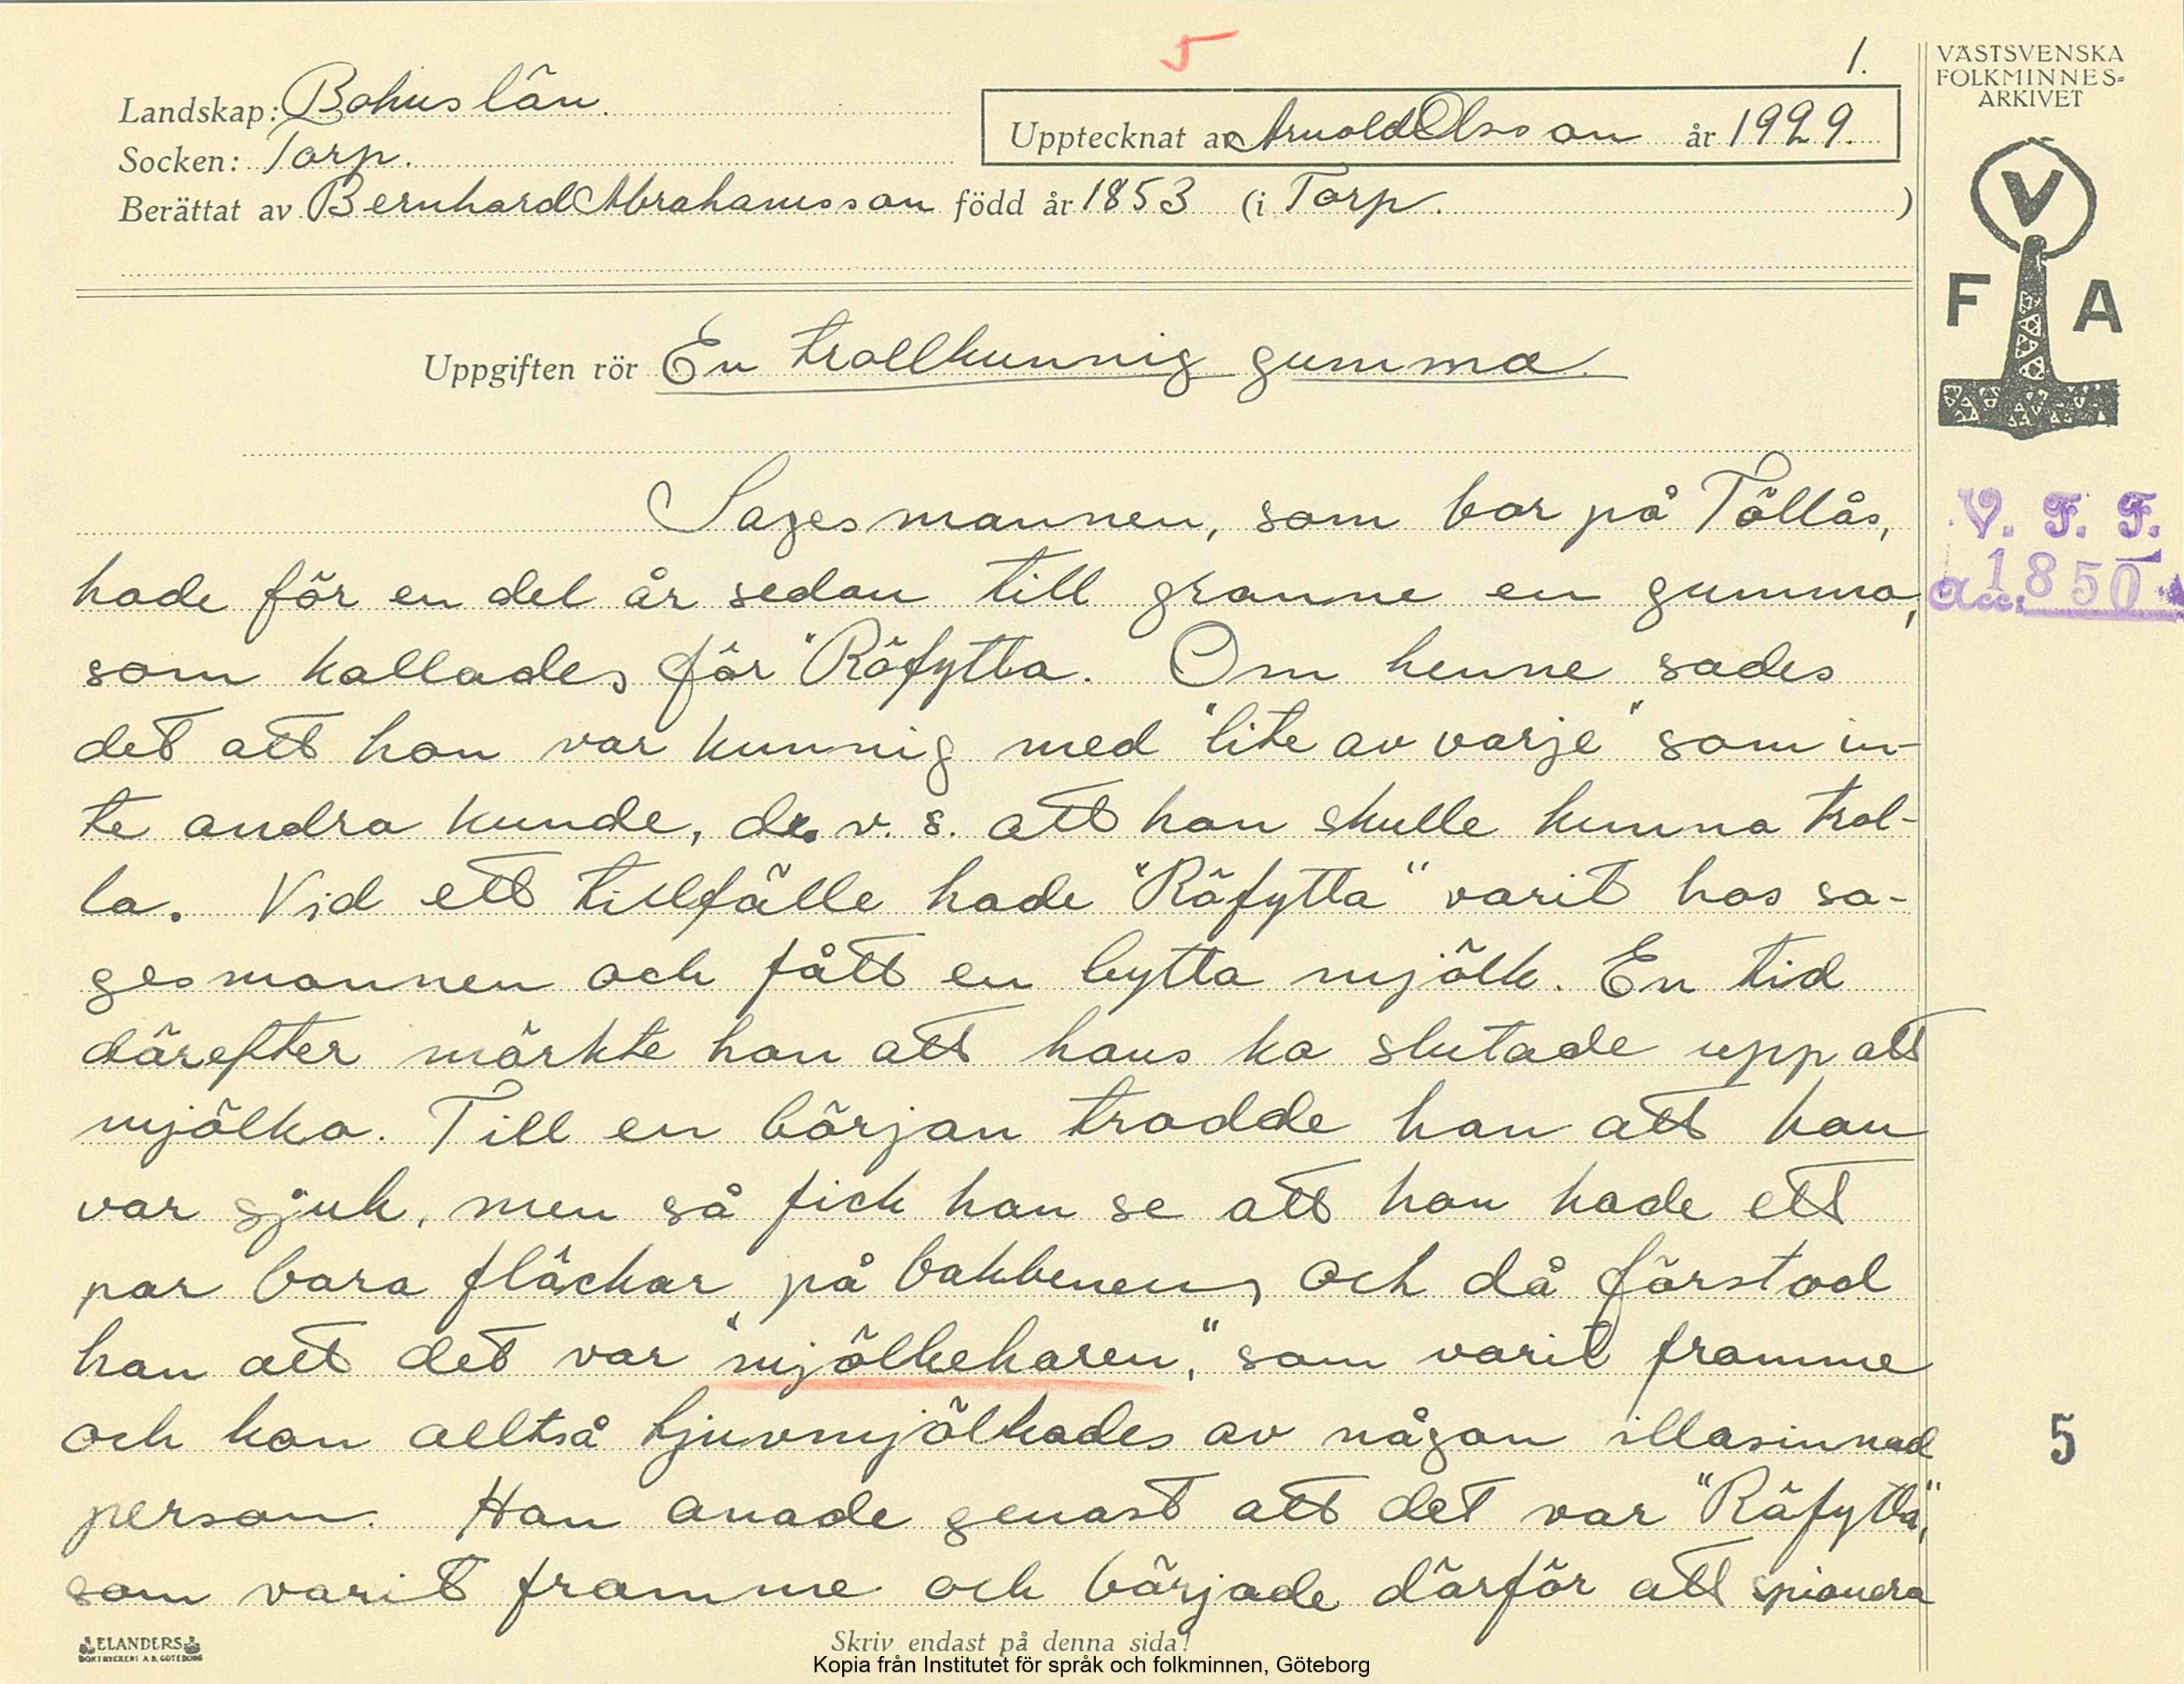 5
1.
VÄSTSVENSKA
FOLKMINNES-
ARKIVET
Landskap: Bohuslän.
Upptecknat av Arnold Olsson år 1929.
Socken: Torp.
Berättat av Bernhard Abrahamsson född år 1853 (i Torp. )
V
F A
Uppgiften rör En trollkunnig gumma.
Sagesmannen, som bor på Töllås,
V. F. F.
hade för en del år sedan till granne en gumma,
acc. 1850
som kallades för "Räfytta. Om henne sades
det att hon var kunnig med "lite av varje" som in-
te andra kunde, d. v. s. att hon skulle kunna trol-
la. Vid ett tillfälle hade "Räfytta" varit hos sa-
gesmannen och fått en bytta mjölk. En tid
därefter märkte han att hans ko slutade upp att
mjölka. Till en början trodde han att kon
var sjuk, men så fick han se att hon hade ett
par bara fläckar på bakbenen, och då förstod
han att det var "mjölkeharen", som varit framme
och kon alltså tjuvmjölkades av någon illasinnad
5
person. Han anade genast att det var "Räfytta",
som varit framme och började därför att spionera
ELANDERS
BOKTRYCKERI A.B. GÖTEBORG
Skriv endast på denna sida!
Kopia från Institutet för språk och folkminnen, Göteborg